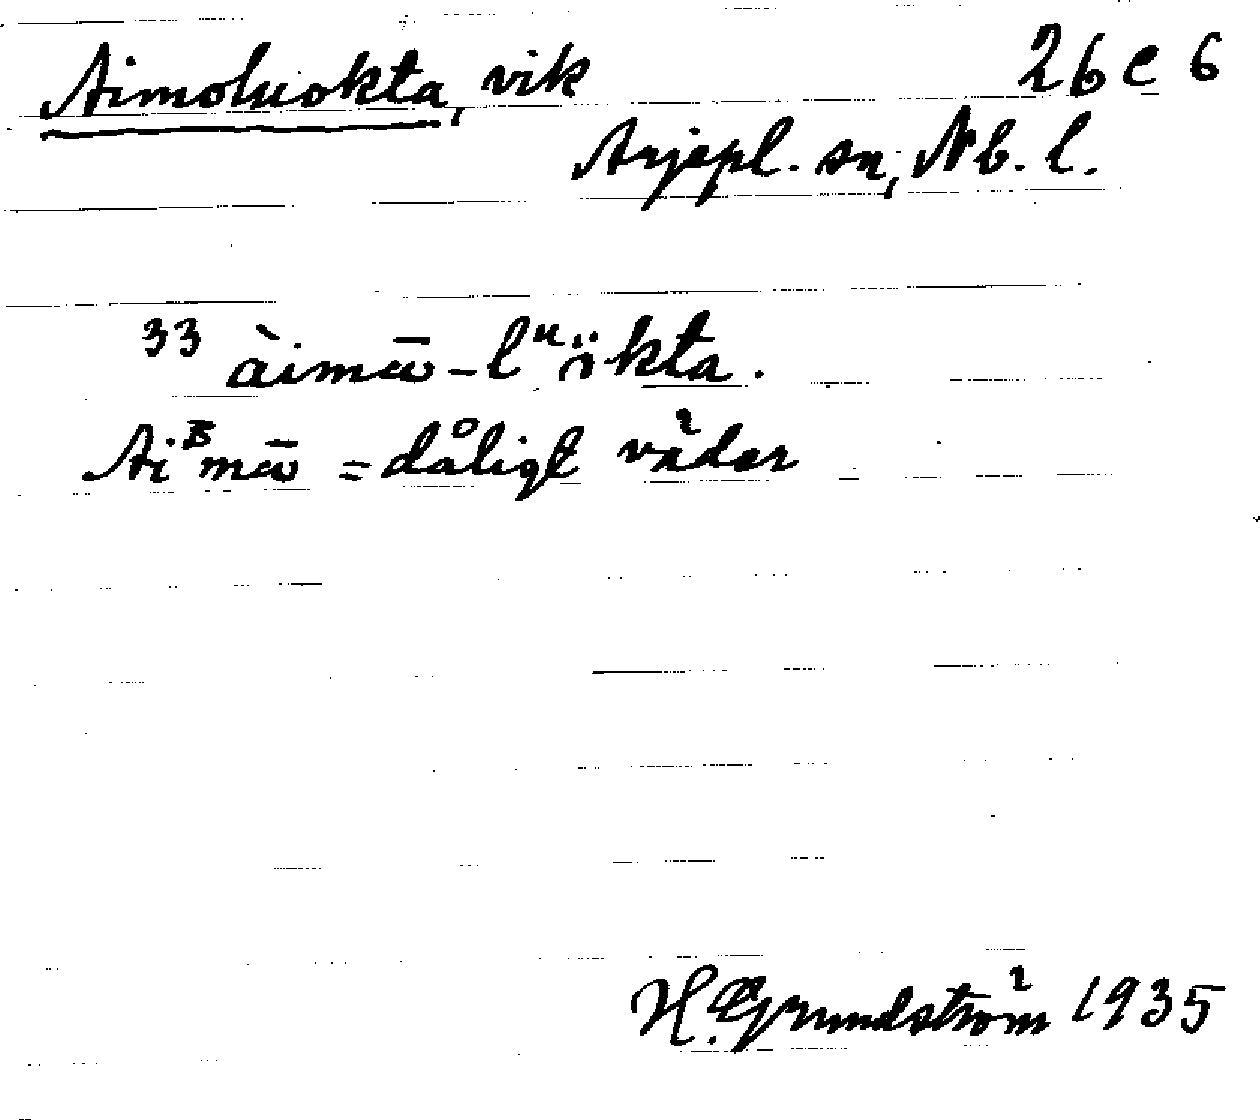 Aimoluokta, vik 26 e 6
Arjepl. sn, Nb. l.
33 àimɷ̄-lᵘökta.
Aiᴮmɷ̄ = dåligt väder
H. Grundström 1935